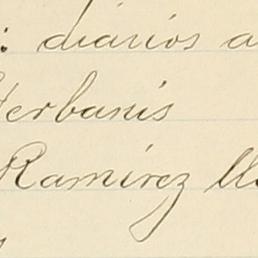 : diarios a
Herbanis
Ramirez